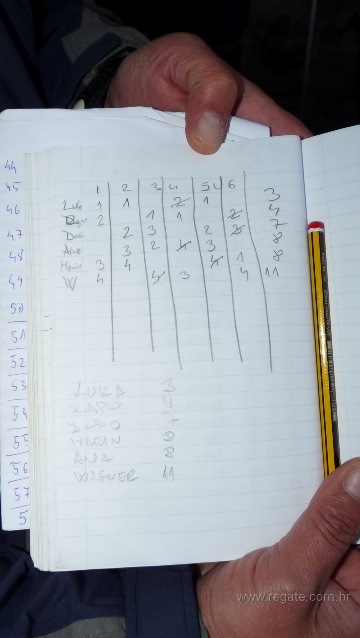 44
45
46
47
48
49
50
51
52
53
54
55
56
57
5
1 2 3 4 5 6
Luka 1 1 2 1 3
2 1 1 2 4
2 3 2 2 7
Ana 3 2 4 3 8
3 4 4 1 8
W 4 4 3 4 11
LUKA 3
4
7
8
ANA 8
WAGNER 11
www.regate.com.hr